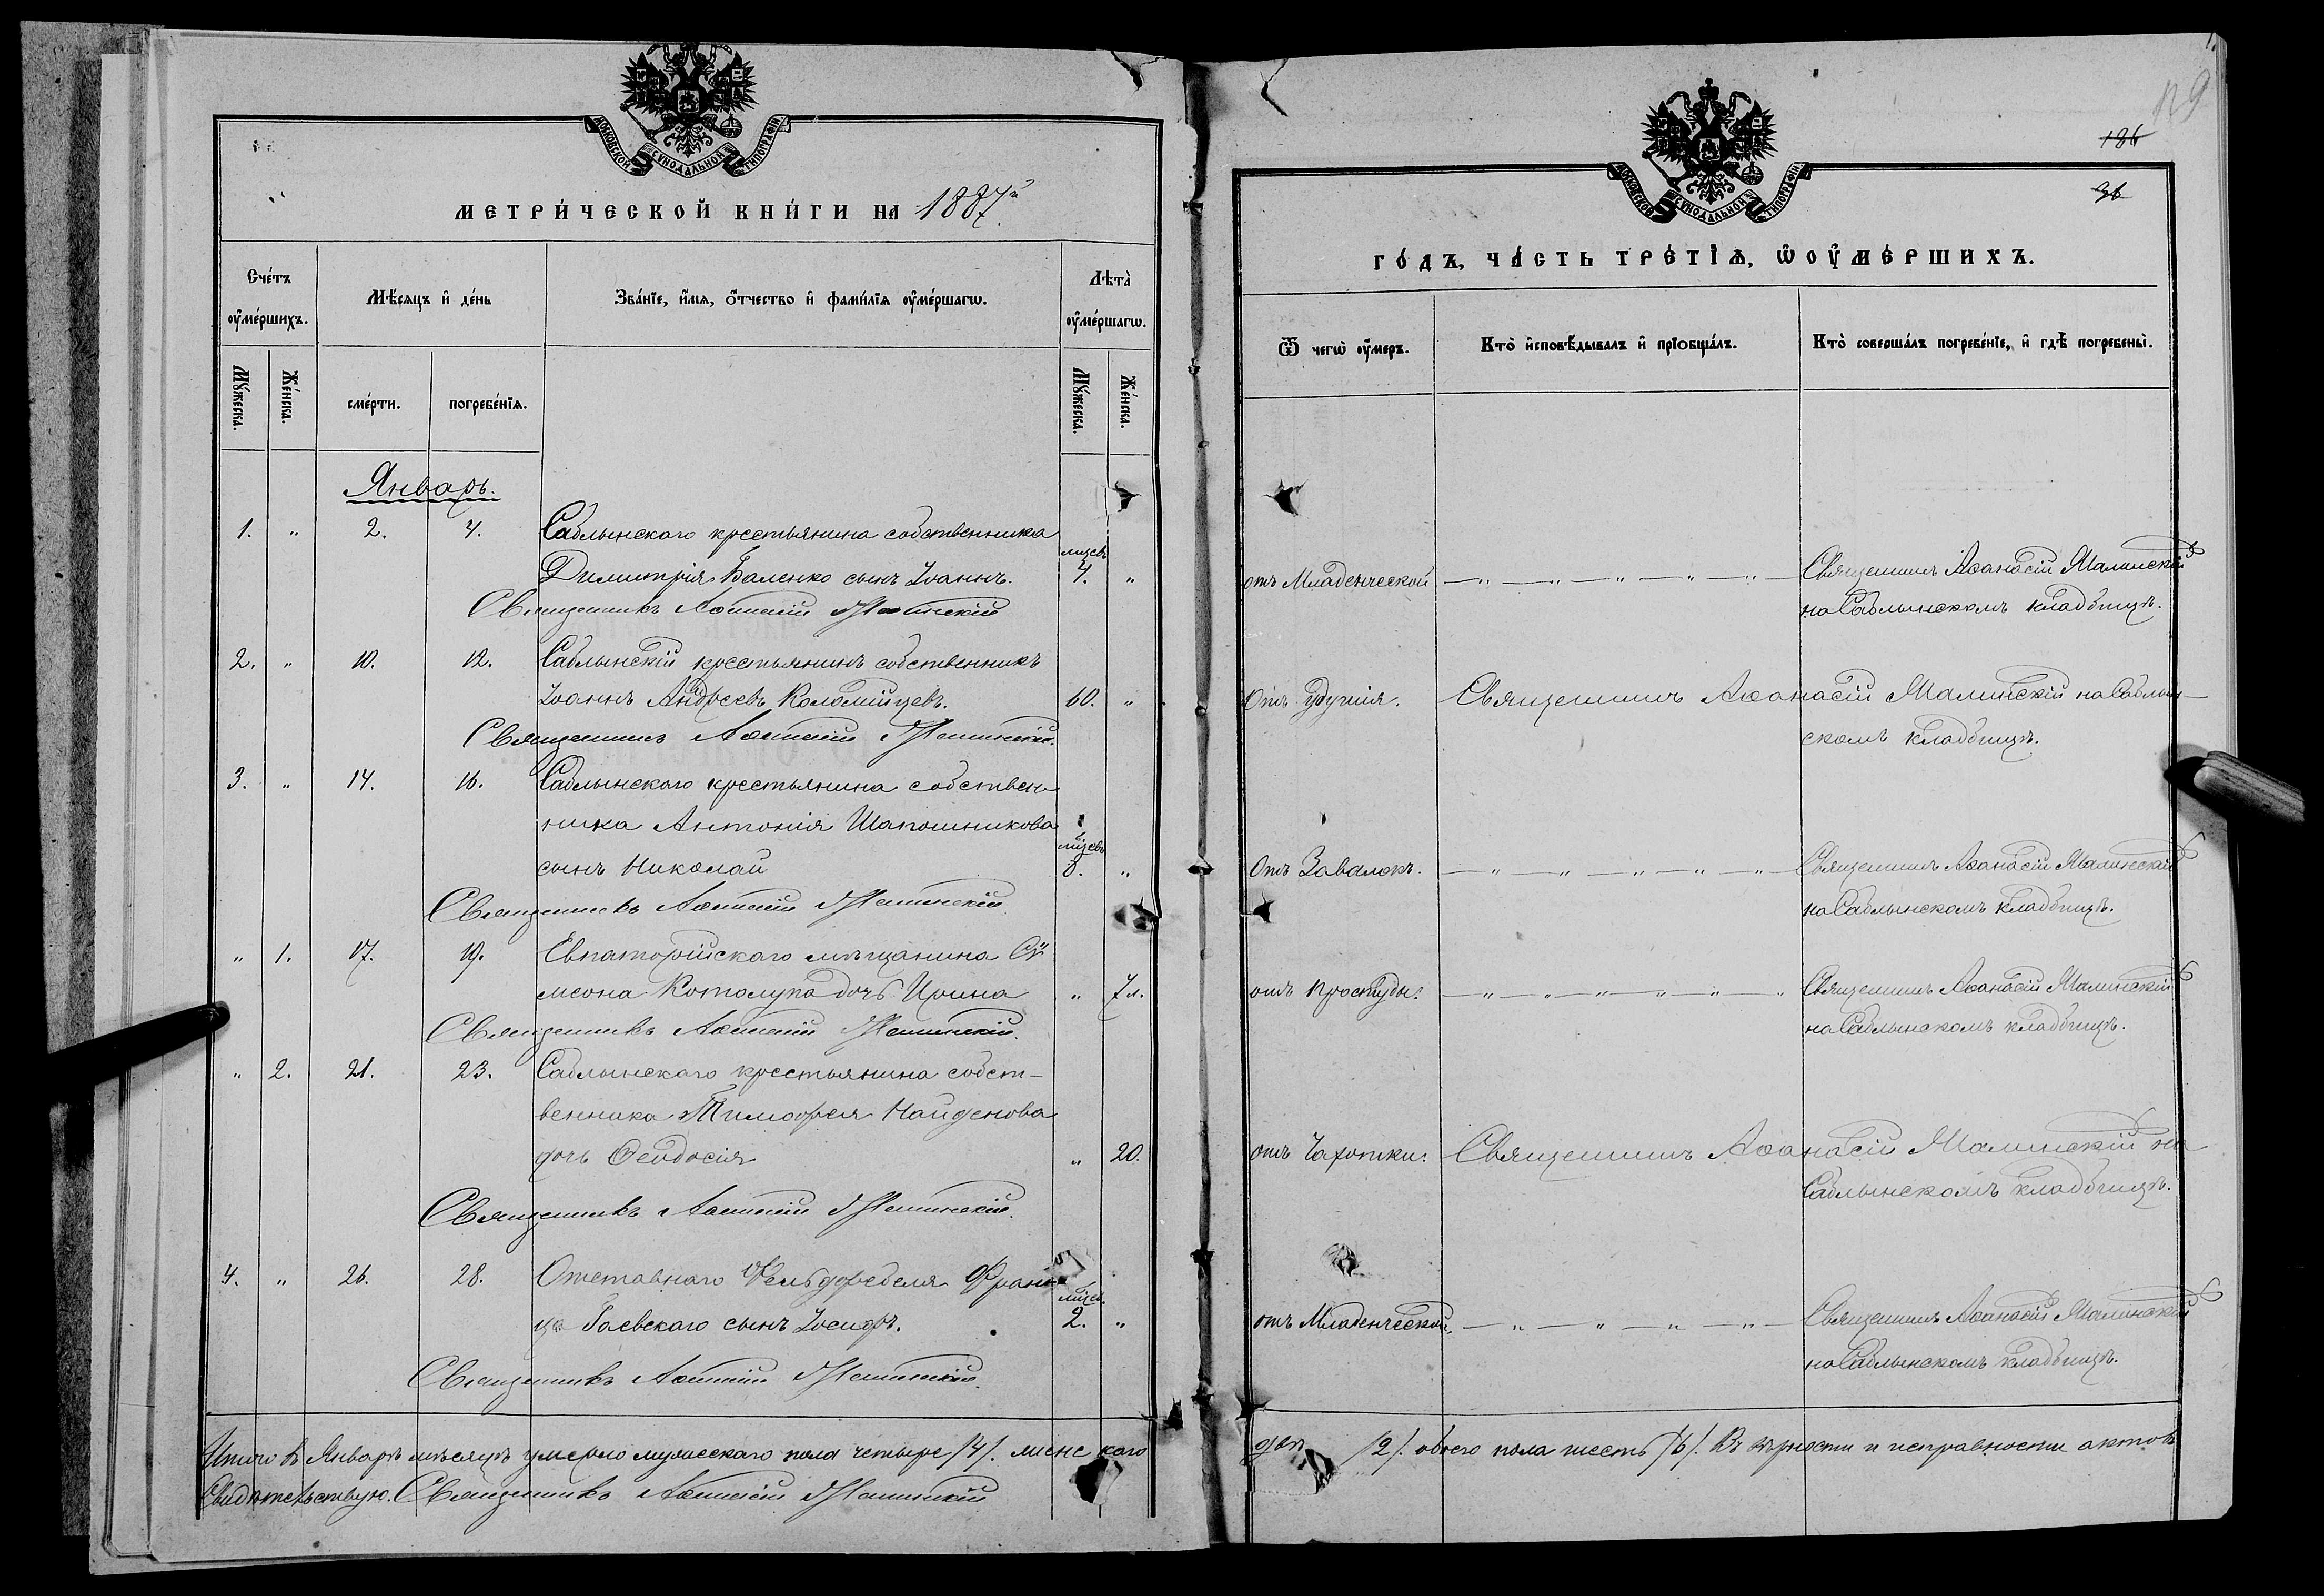 МОСКОВСКОЙ СѴНОДАЛЬНОЙ ТИПОГРАФІИ
МЕТРИ́ЧЕСКОЙ КНИ́ГИ НА 1887й
Сче́тъ ᲂу҆ме́ршихъ.
Мѣ́сяцъ и҆ де́нь
Зва́нїе, и҆́мѧ, ѻ҆́тчество и҆ фами́лїѧ ᲂу҆ме́ршагѡ.
Лѣта̀ ᲂу҆ме́ршагѡ.
Мꙋ́жеска.
Же́нска.
сме́рти.
погребе́нїѧ.
Мꙋ́жеска.
Же́нска.
Январь.
1. " 2. 4. Саблынскаго крестьянина собственника
Димитрія Баленко сынъ Іоаннъ. мѣсев 4. "
Священникъ Аѳанасій Малинскій
2. " 10. 12. Саблынскій крестьянинъ собственникъ
Іоаннъ Андреевъ Коломійцевъ. 60. "
Священникъ Аѳанасій Малинскій.
3. " 14. 16. Саблынскаго крестьянина собствен-
ника Антонія Шапошникова
сынъ Николай 8. "
Священникъ Аѳанасій Малинскій
" 1. 17. 19. Евпаторійскаго мѣщанина Си
меона Котолупа дочь Ирина " 7 л.
Священникъ Аѳанасій Малинскій.
" 2. 21. 23. Саблынскаго крестьянина собст-
венника Тимофея Найденова
дочь Ѳеодосія " 20.
Священникъ Аѳанасій Малинскій.
4. " 26. 28. Отставнаго Фельдфебеля Фран
ца Гаевскаго сынъ Іосифъ. 2. "
Священникъ Аѳанасій Малинскій.
Итого въ Январѣ мѣсяцѣ умерло мужескаго пола четыре /4/. женс каго
Свидѣтельствую. Священникъ Аѳанасій Малинскій
129
126
МОСКОВСКОЙ СѴНОДАЛЬНОЙ ТИПОГРАФІИ
ГО́ДЪ, ЧА́СТЬ ТРЕ́ТІѦ, Ѡ ОУ҆МЕ́РШИХЪ.
Ѿ чегѡ̀ ᲂу҆́меръ.
Кто̀ и҆сповѣ́дывалъ и҆ прїобща́лъ.
Кто̀ соверша́лъ погребе́нїе, и҆ гдѣ̀ погребены̀.
отъ Младенческой — " — " — " — " — " — Священникъ Аѳанасій Малинскій
на Саблынскомъ кладбищѣ.
Отъ удушія. Священникъ Аѳанасій Малинскій на Саблын-
скомъ кладбищѣ.
Отъ Завалокъ. — " — " — " — " — " — Священникъ Аѳанасій Малинскій
на Саблынскомъ кладбищѣ.
отъ простуды. — " — " — " — " — " — " Священникъ Аѳанасій Малинскій
на Саблынскомъ кладбищѣ.
отъ Чахотки. Священникъ Аѳанасій Малинскій на
Саблынскомъ кладбищѣ.
отъ Младенческой. — " — " — " — " — Священникъ Аѳанасій Малинскій
на Саблынскомъ кладбищѣ.
два /2/. обоего пола шесть /6/. Въ вѣрности и исправности актовъ